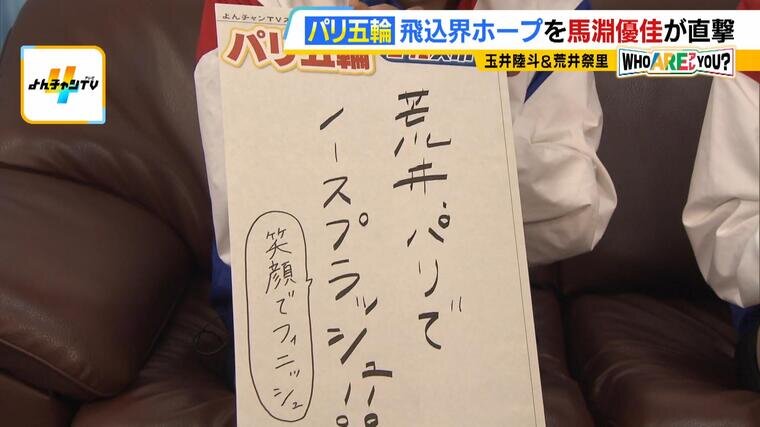 よんチャンTV
パリ五輪 飛込界ホープを馬淵優佳が直撃
玉井陸斗&荒井祭里
WHO ARE YOU?
よんチャンTVス
パリ五輪
荒井、パリで
ノースプラッシュ!!
笑顔でフィニッシュ